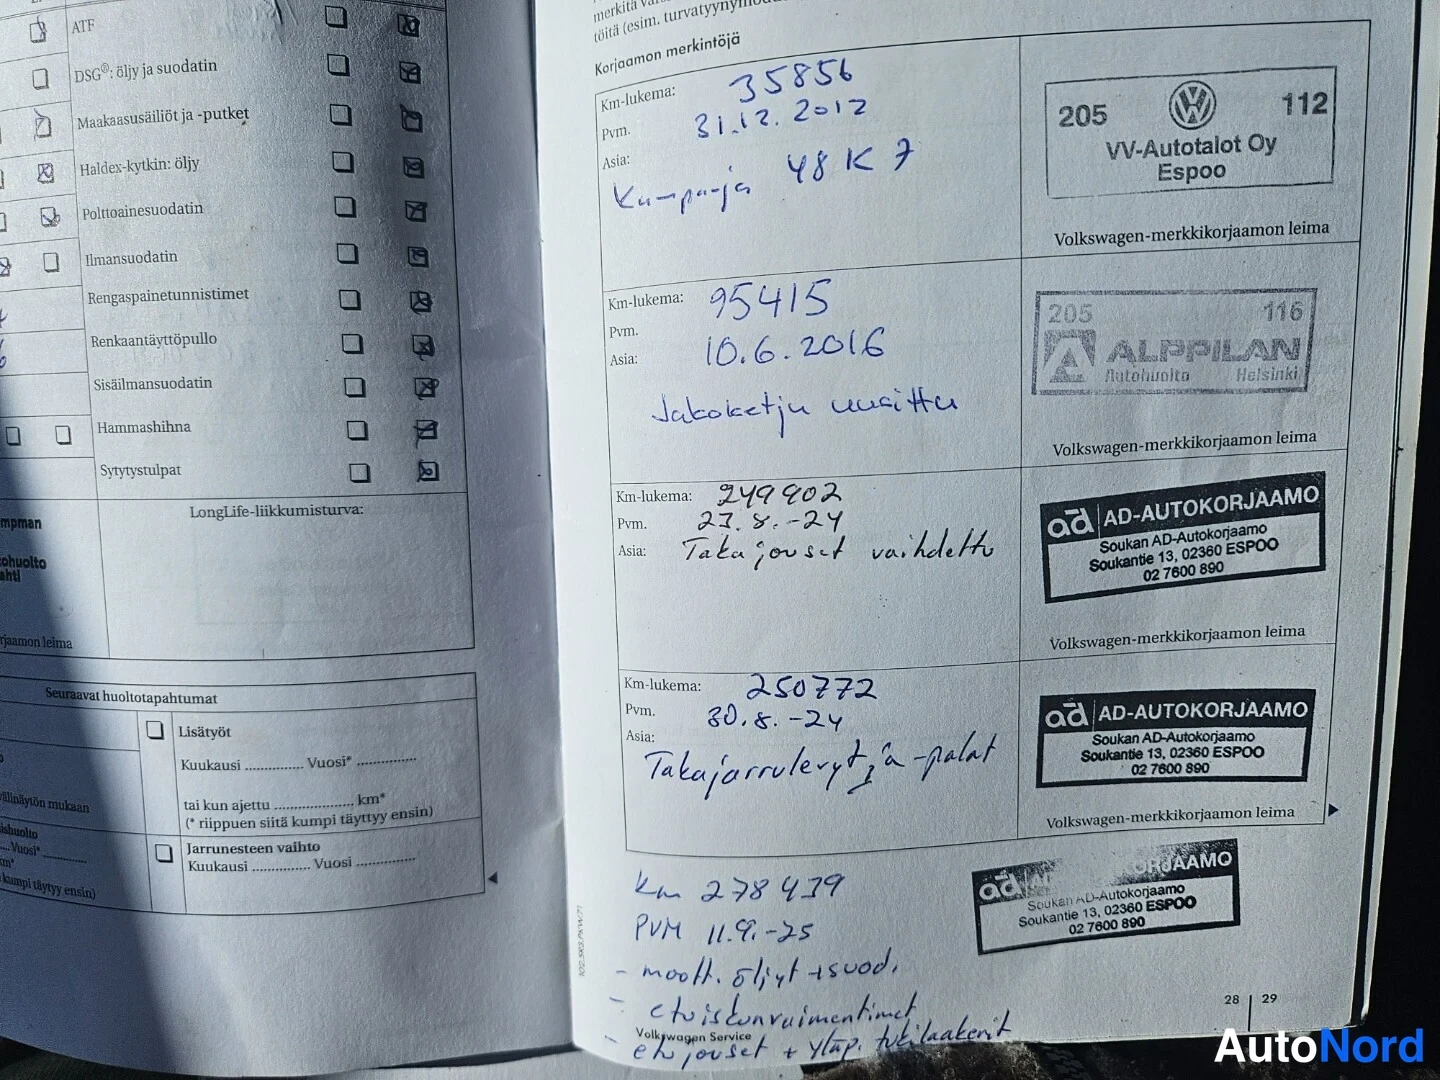 ATF
DSG®: öljy ja suodatin
Maakaasusäiliöt ja -putket
Haldex-kytkin: öljy
Polttoainesuodatin
Ilmansuodatin
Rengaspainetunnistimet
Renkaantäyttöpullo
Sisäilmansuodatin
Hammashihna
Sytytystulpat
LongLife-liikkumisturva:
mpman
ohuolto
ahti
rjaamon leima
Seuraavat huoltotapahtumat
Lisätyöt
Kuukausi ............. Vuosi* .............
tai kun ajettu .................. km*
(* riippuen siitä kumpi täyttyy ensin)
välinäytön mukaan
Jarrunesteen vaihto
Kuukausi ............. Vuosi .............
ishuolto
.... Vuosi* .............
km*
kumpi täytyy ensin)
merkitä
töitä (esim. turvatyyny
Korjaamon merkintöjä
Km-lukema: 35856
Pvm. 31.12.2012
Asia:
Kumpanja 48K7
205 112
VV-Autotalot Oy
Espoo
Volkswagen-merkkikorjaamon leima
Km-lukema: 95415
Pvm.
Asia: 10.6.2016
Jakoketju uusittu
205 116
ALPPILAN
Autohuolto Helsinki
Volkswagen-merkkikorjaamon leima
Km-lukema: 249902
Pvm. 27.8.-24
Asia: Takajouset vaihdettu
ad AD-AUTOKORJAAMO
Soukan AD-Autokorjaamo
Soukantie 13, 02360 ESPOO
02 7600 890
Volkswagen-merkkikorjaamon leima
Km-lukema: 250772
Pvm. 30.8.-24
Asia:
Takajarrulevyt ja -palat
ad AD-AUTOKORJAAMO
Soukan AD-Autokorjaamo
Soukantie 13, 02360 ESPOO
02 7600 890
Volkswagen-merkkikorjaamon leima
Km 278439
PVM 11.9.-25
- moott. öljyt + suod.
- etuiskunvaimentimet
- etujouset + yläp. tukilaakerit
ad KORJAAMO
Soukan AD-Autokorjaamo
Soukantie 13, 02360 ESPOO
02 7600 890
Volkswagen Service
28 | 29
AutoNord